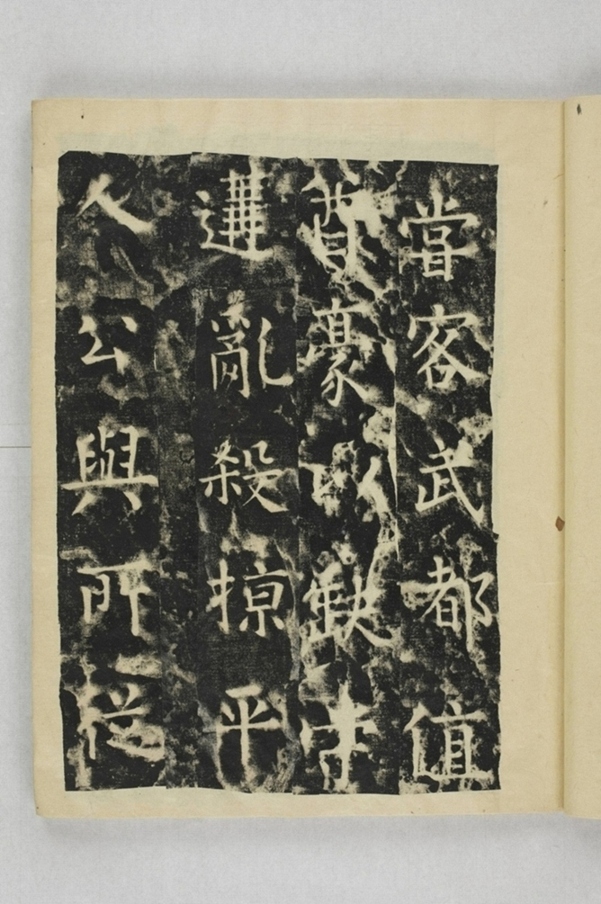 嘗客武都值
豪以缺守
遘亂殺掠平
人公與所從